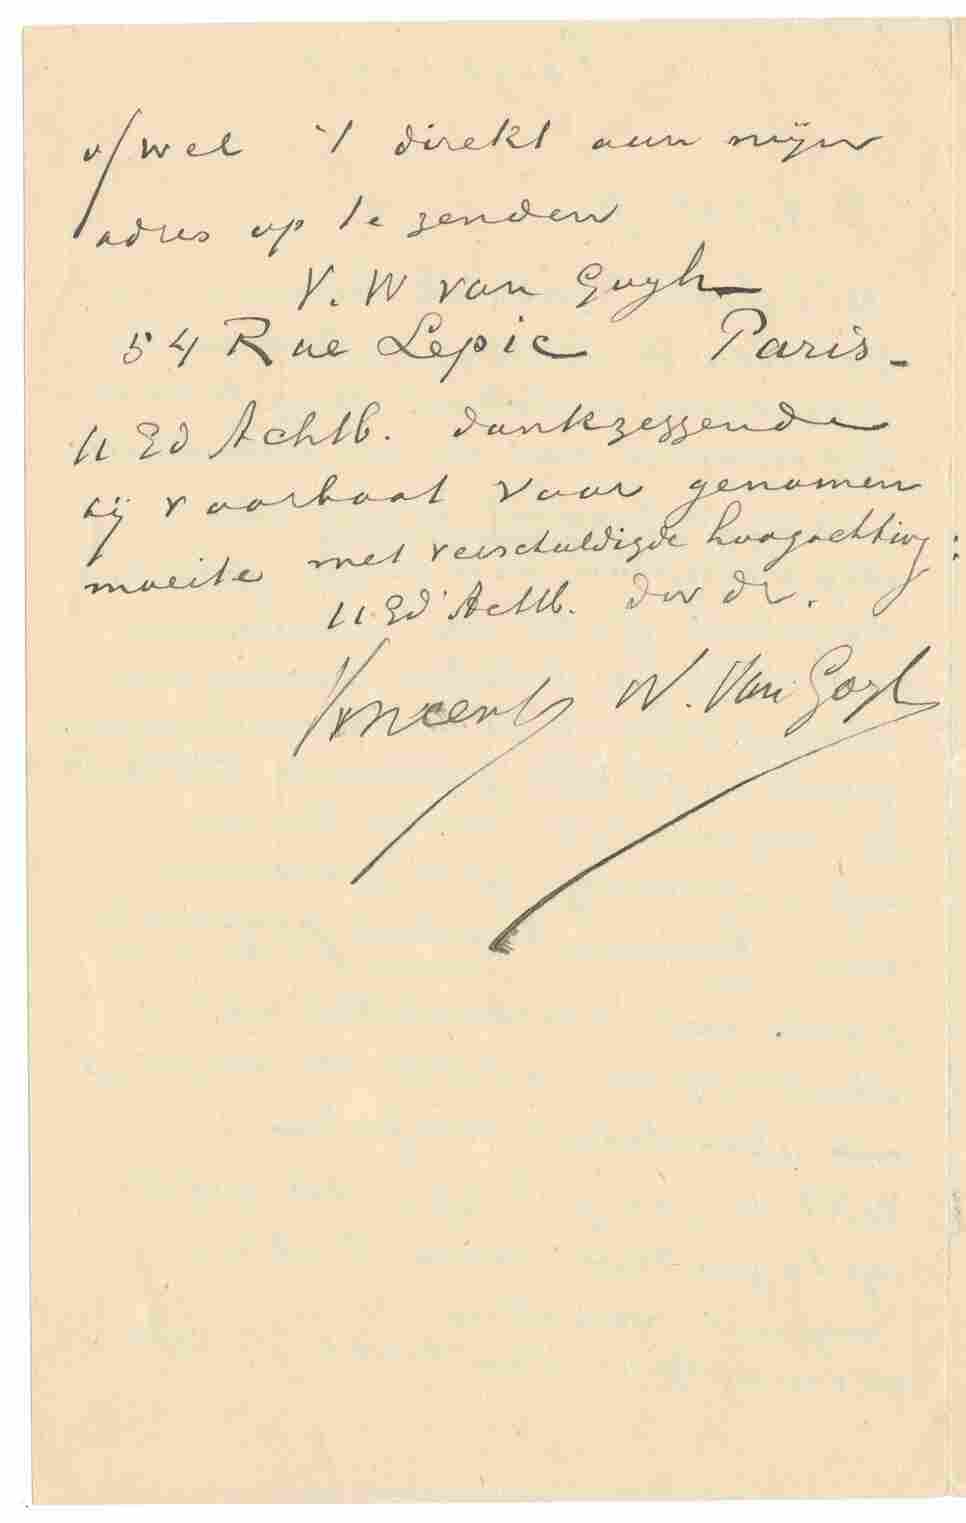 ofwel 't direkt aan mijn
adres op te zenden
V. W van Gogh
54 Rue Lepic Paris -
U Ed Achtb. dankzeggende
bij voorbaat voor genomen
moeite met verschuldigde hoogachting:
U Ed Achtb. dw dr.
Vincent W. Van Gogh